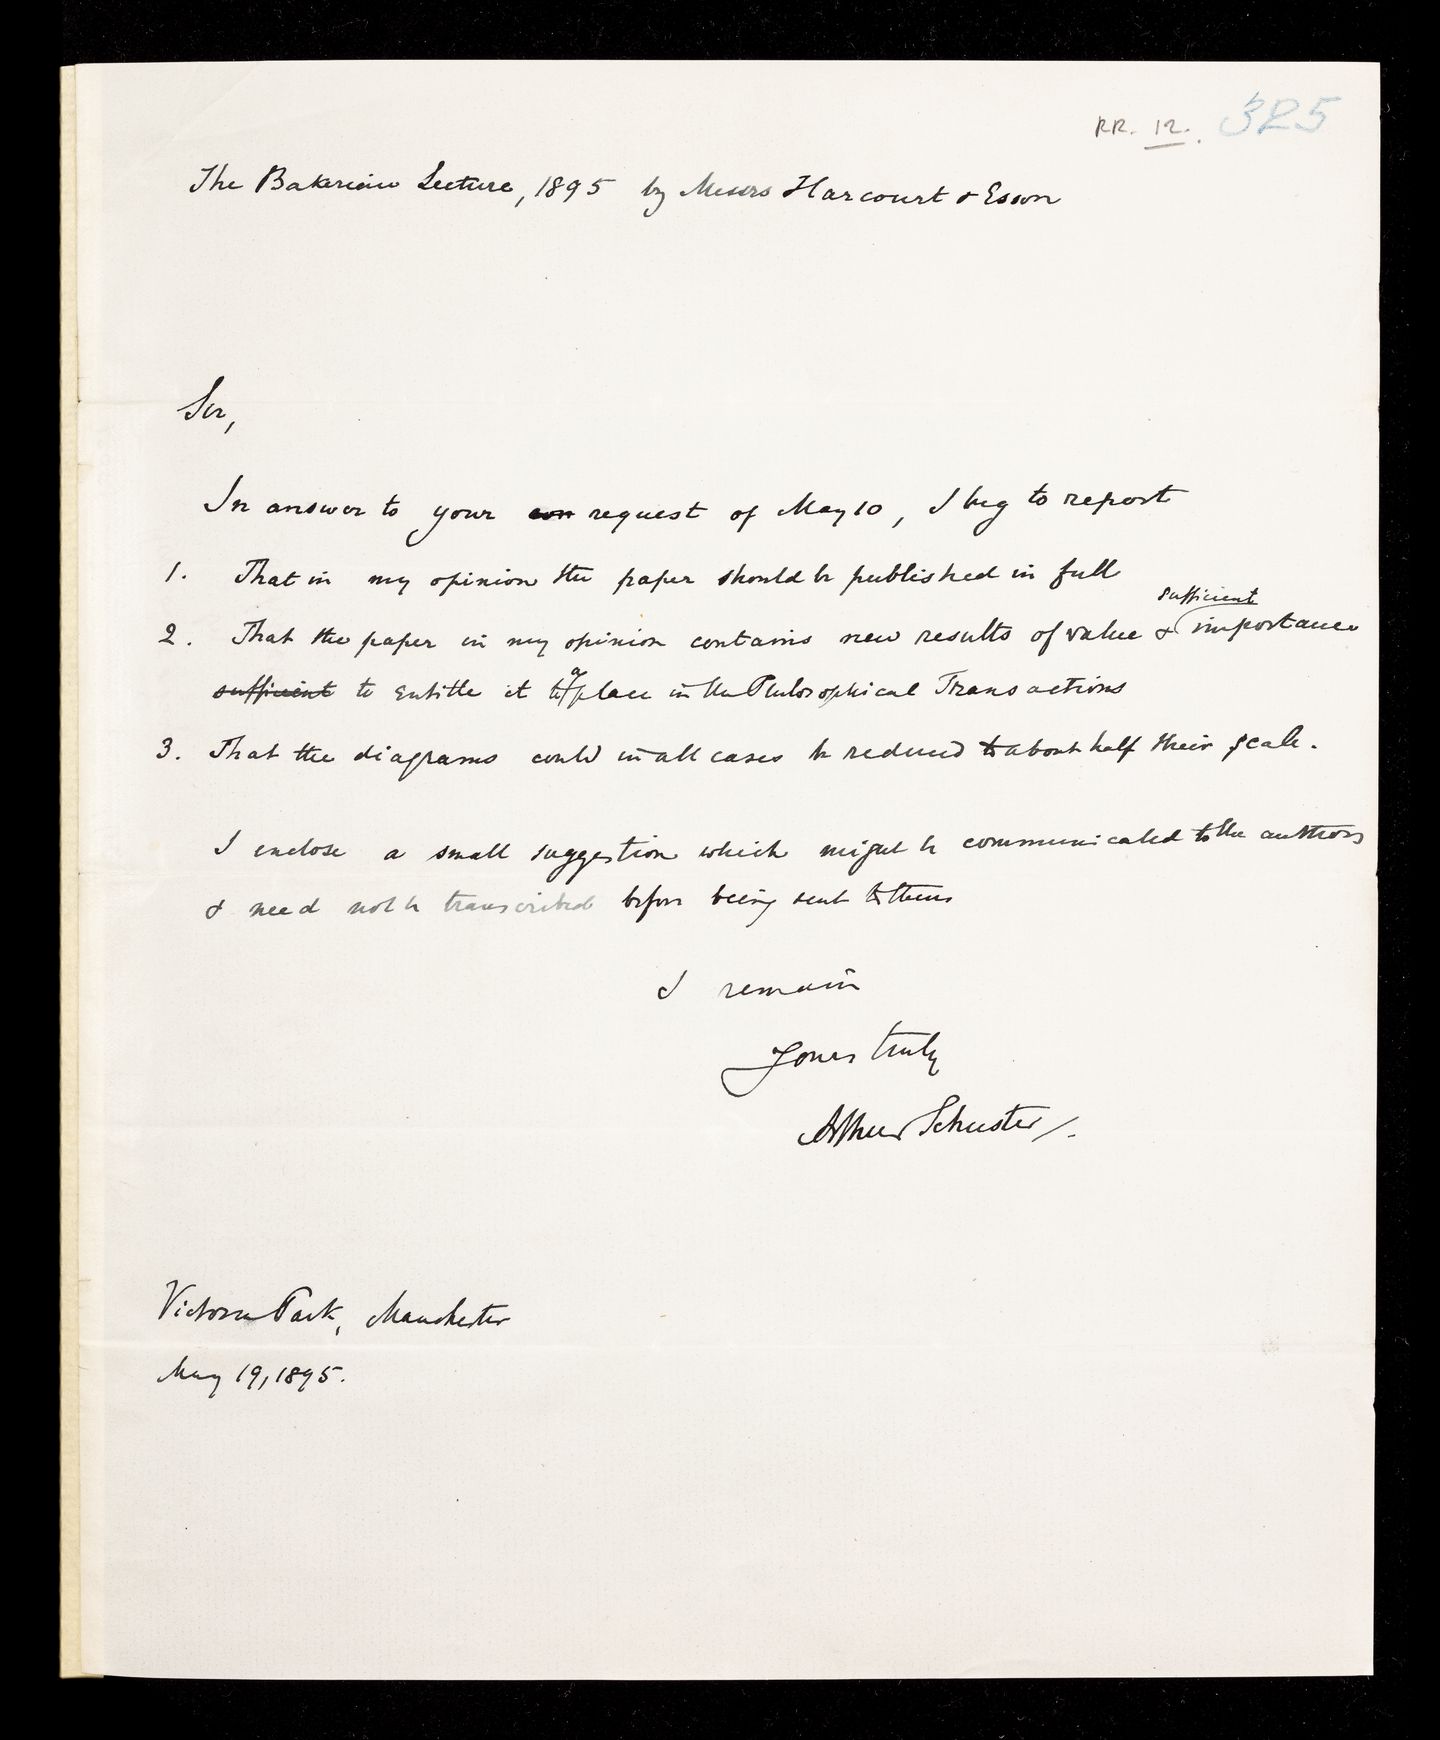 RR. 12. 325
The Bakerian Lecture, 1895 by Messrs Harcourt & Esson
Sir,
In answer to your con request of May 10, I beg to report
1. That in my opinion the paper should be published in full
sufficient
2. That the paper in my opinion contains new results of value & importance
sufficient to entitle it to a place in the Philosophical Transactions
3. That the diagrams could in all cases be reduced to about half their scale.
I enclose a small suggestion which might be communicated to the authors
& need not be transcribed before being sent to them
I remain
Yours truly
Arthur Schuster
Victoria Park, Manchester
May 19, 1895.